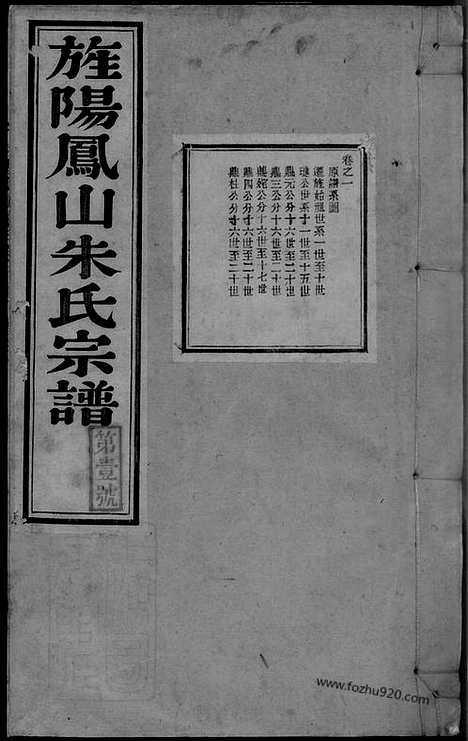 旌陽鳳山朱氏宗譜
第壹號
卷之一
原譜系圖
遷旌始祖世系一世至十世
璁公世系十一世至十五世
鼎元公分十六世至二十世
鼎三公分十六世至二十世
鼎四公分十六世至二十世
鼎杜公分十六世至二十世
www.fozhu920.com